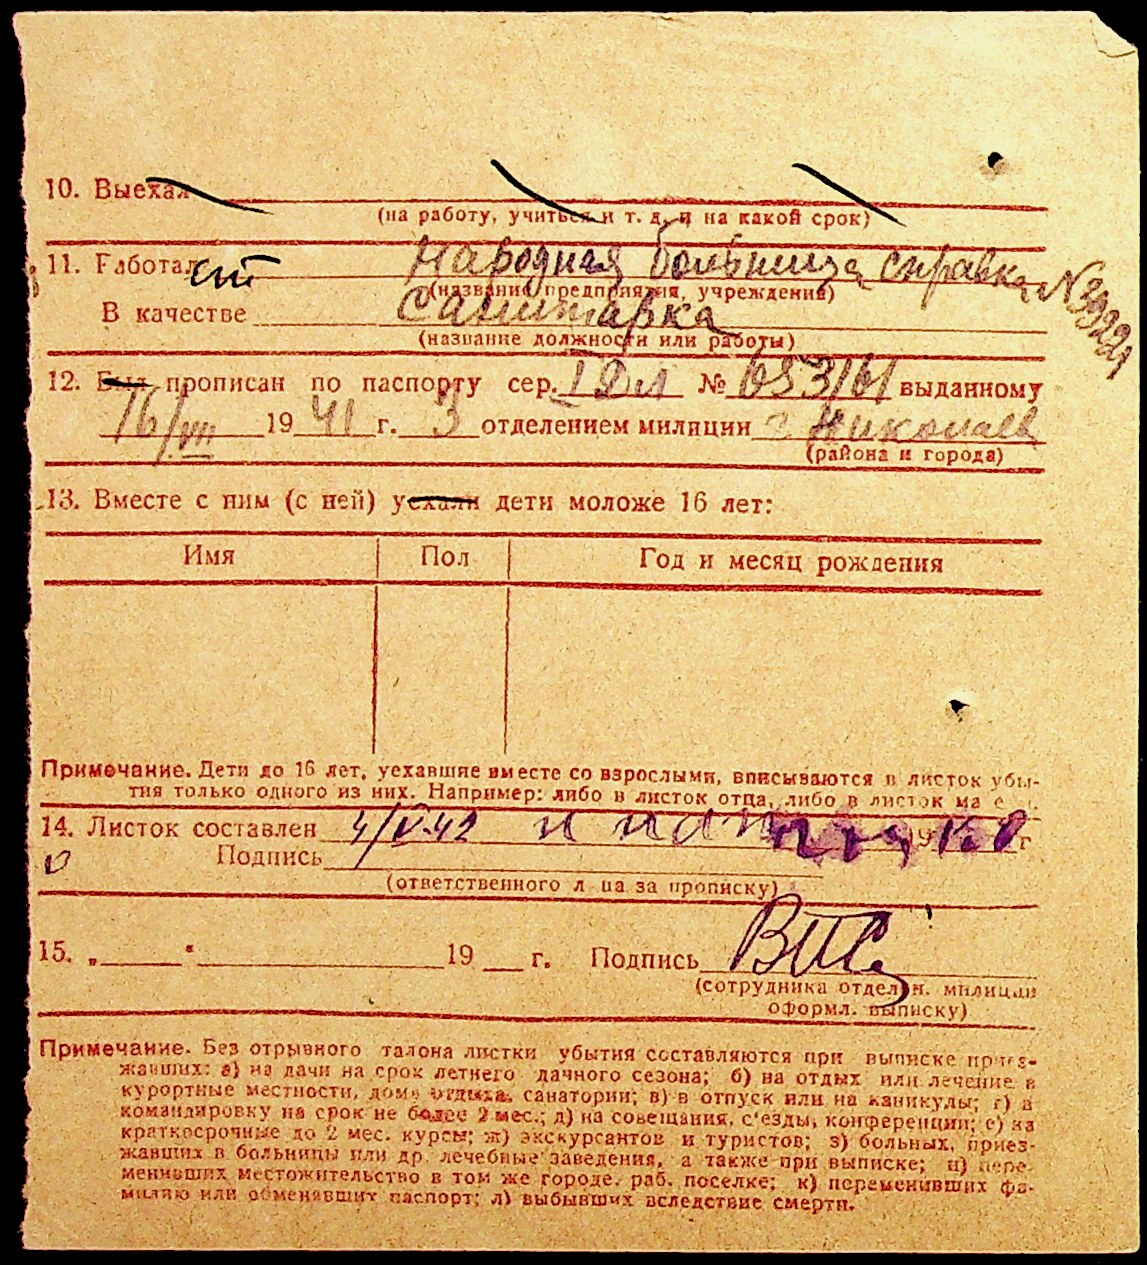 10. Выехал
(на работу, учиться и т. д. и на какой срок)
11. Работал Народная больница справка № 39229
(название предприятия, учреждения)
В качестве санитарка
(название должности или работы)
12. Был прописан по паспорту сер. № 653161 выданному
16/VII 1941 г. 3 отделением милиции г Николаев
(района и города)
13. Вместе с ним (с ней) уехали дети моложе 16 лет:
Имя Пол Год и месяц рождения
Примечание. Дети до 16 лет, уехавшие вместе со взрослыми, вписываются в листок убы-
тия только одного из них. Например: либо в листок отца, либо в листок ма е
14. Листок составлен 4/V-42 г
Подпись
(ответственного л ца за прописку)
15. „ “ 19 г. Подпись
(сотрудника отделен. милиции
оформл. выписку)
Примечание. Без отрывного талона листки убытия составляются при выписке приез-
жавших: а) на дачи на срок летнего дачного сезона; б) на отдых или лечение в
курортные местности, дома отдыха, санатории; в) в отпуск или на каникулы; г) в
командировку на срок не более 2 мес.; д) на совещания, с'езды, конференции; е) на
краткосрочные до 2 мес. курсы; ж) экскурсантов и туристов; з) больных, приез-
жавших в больницы или др. лечебные заведения, а также при выписке; и) пере-
менивших местожительство в том же городе. раб. поселке; к) переменивших фа-
милию или обменявших паспорт; л) выбывших вследствие смерти.